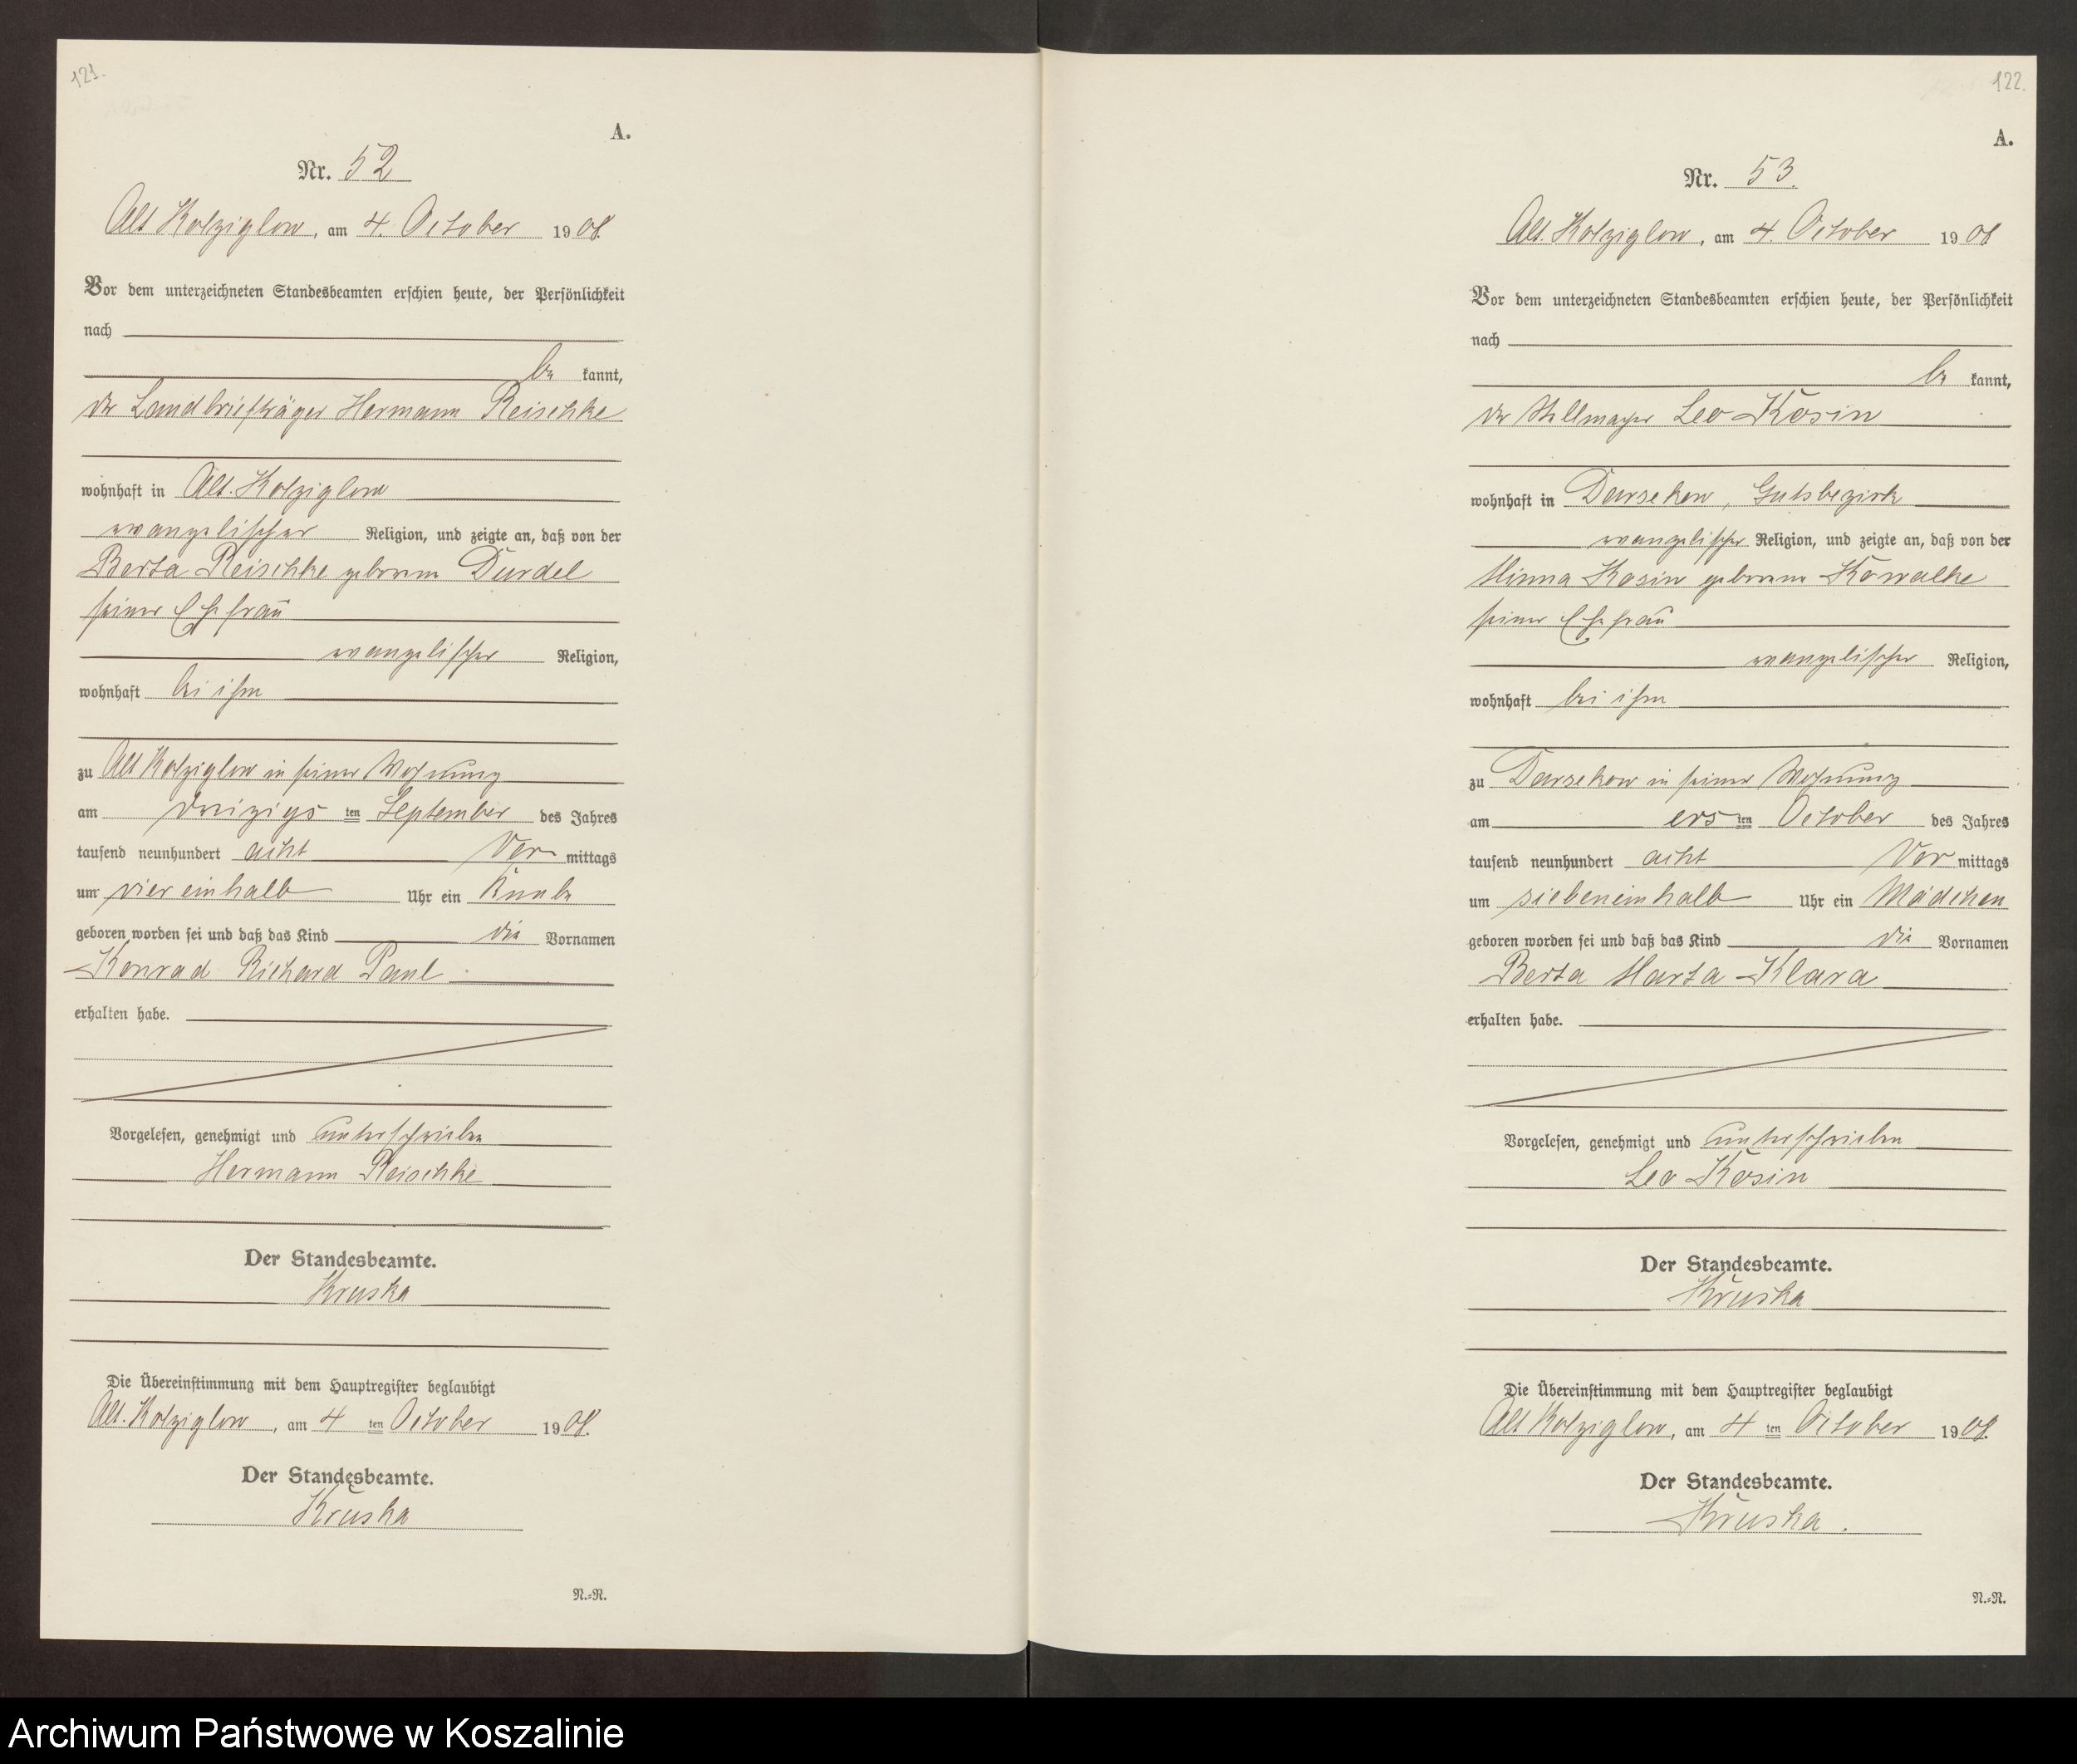 121.
A.
Nr. 52
Alt Kolziglow, am 4. October 1908.
Vor dem unterzeichneten Standesbeamten erschien heute, der Persönlichkeit
nach
be kannt,
der Landbriefträger Hermann Reischke
wohnhaft in Alt. Kolziglow
evangelischer Religion, und zeigte an, daß von der
Berta Reischke geborenen Durdel
seiner Ehefrau
evangelischer Religion,
wohnhaft bei ihm
zu Alt Kolziglow in seiner Wohnung
am dreizigs ten September des Jahres
tausend neunhundert acht Vor mittags
um viereinhalb Uhr ein Knabe
geboren worden sei und daß das Kind die Vornamen
Konrad Richard Paul
erhalten habe.
Vorgelesen, genehmigt und unterschrieben
Hermann Reischke
Der Standesbeamte.
Kruska
Die Übereinstimmung mit dem Hauptregister beglaubigt
Alt. Kolziglow, am 4 ten October 1908.
Der Standesbeamte.
Kruska
N.=N.
122.
A.
Nr. 53.
Alt. Kolziglow, am 4. October 1908
Vor dem unterzeichneten Standesbeamten erschien heute, der Persönlichkeit
nach
be kannt,
der Stellmacher Leo Kosin
wohnhaft in Darsekow, Gutsbezirk
evangelischer Religion, und zeigte an, daß von der
Minna Kosin geborenen Kowalke
seiner Ehefrau
evangelischer Religion,
wohnhaft bei ihm
zu Darsekow in seiner Wohnung
am ers ten October des Jahres
tausend neunhundert acht Vor mittags
um siebeneinhalb Uhr ein Mädchen
geboren worden sei und daß das Kind die Vornamen
Berta Marta Klara
erhalten habe.
Vorgelesen, genehmigt und unterschrieben
Leo Kosin
Der Standesbeamte.
Kruska
Die Übereinstimmung mit dem Hauptregister beglaubigt
Alt Kolziglow, am 4 ten October 1908.
Der Standesbeamte.
Kruska.
N.=N.
Archiwum Państwowe w Koszalinie